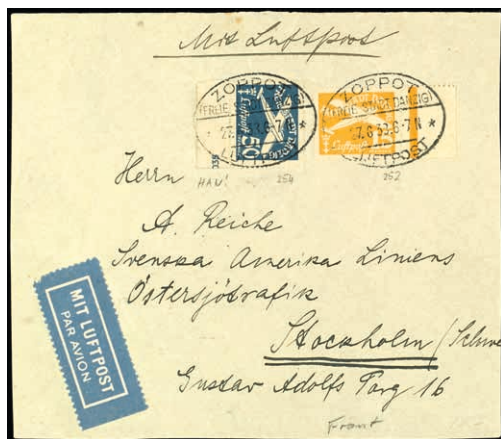 Mit Luftpost
ZOPPOT
(FREIE STADT DANZIG)
27.6.33.6-7 N *
LUFTPOST
ZOPPOT
(FREIE STADT DANZIG)
27.6.33.6-7 N *
LUFTPOST
Luftpost
50
Luftpost
Herrn
HAN!
254
252
A. Reiche
Svenska Amerika Liniens
Östersjötrafik
Stockholm (Schwe
Gustav Adolfs Torg 16
MIT LUFTPOST
PAR AVION
Front